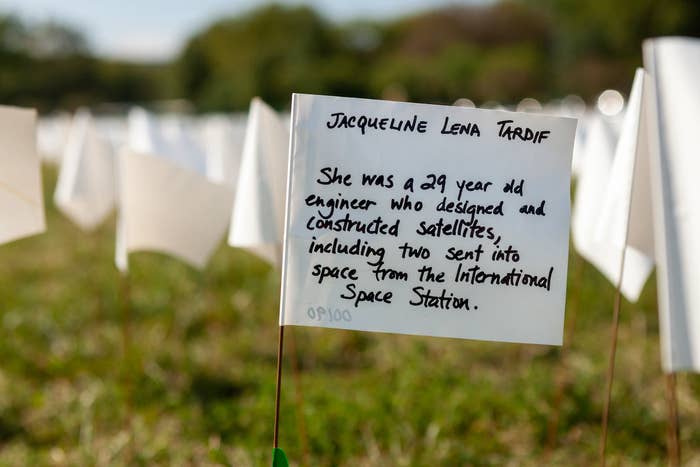 JACQUELINE LENA TARDIF
She was a 29 year old
engineer who designed and
constructed satellites,
including two sent into
space from the International
Space Station.